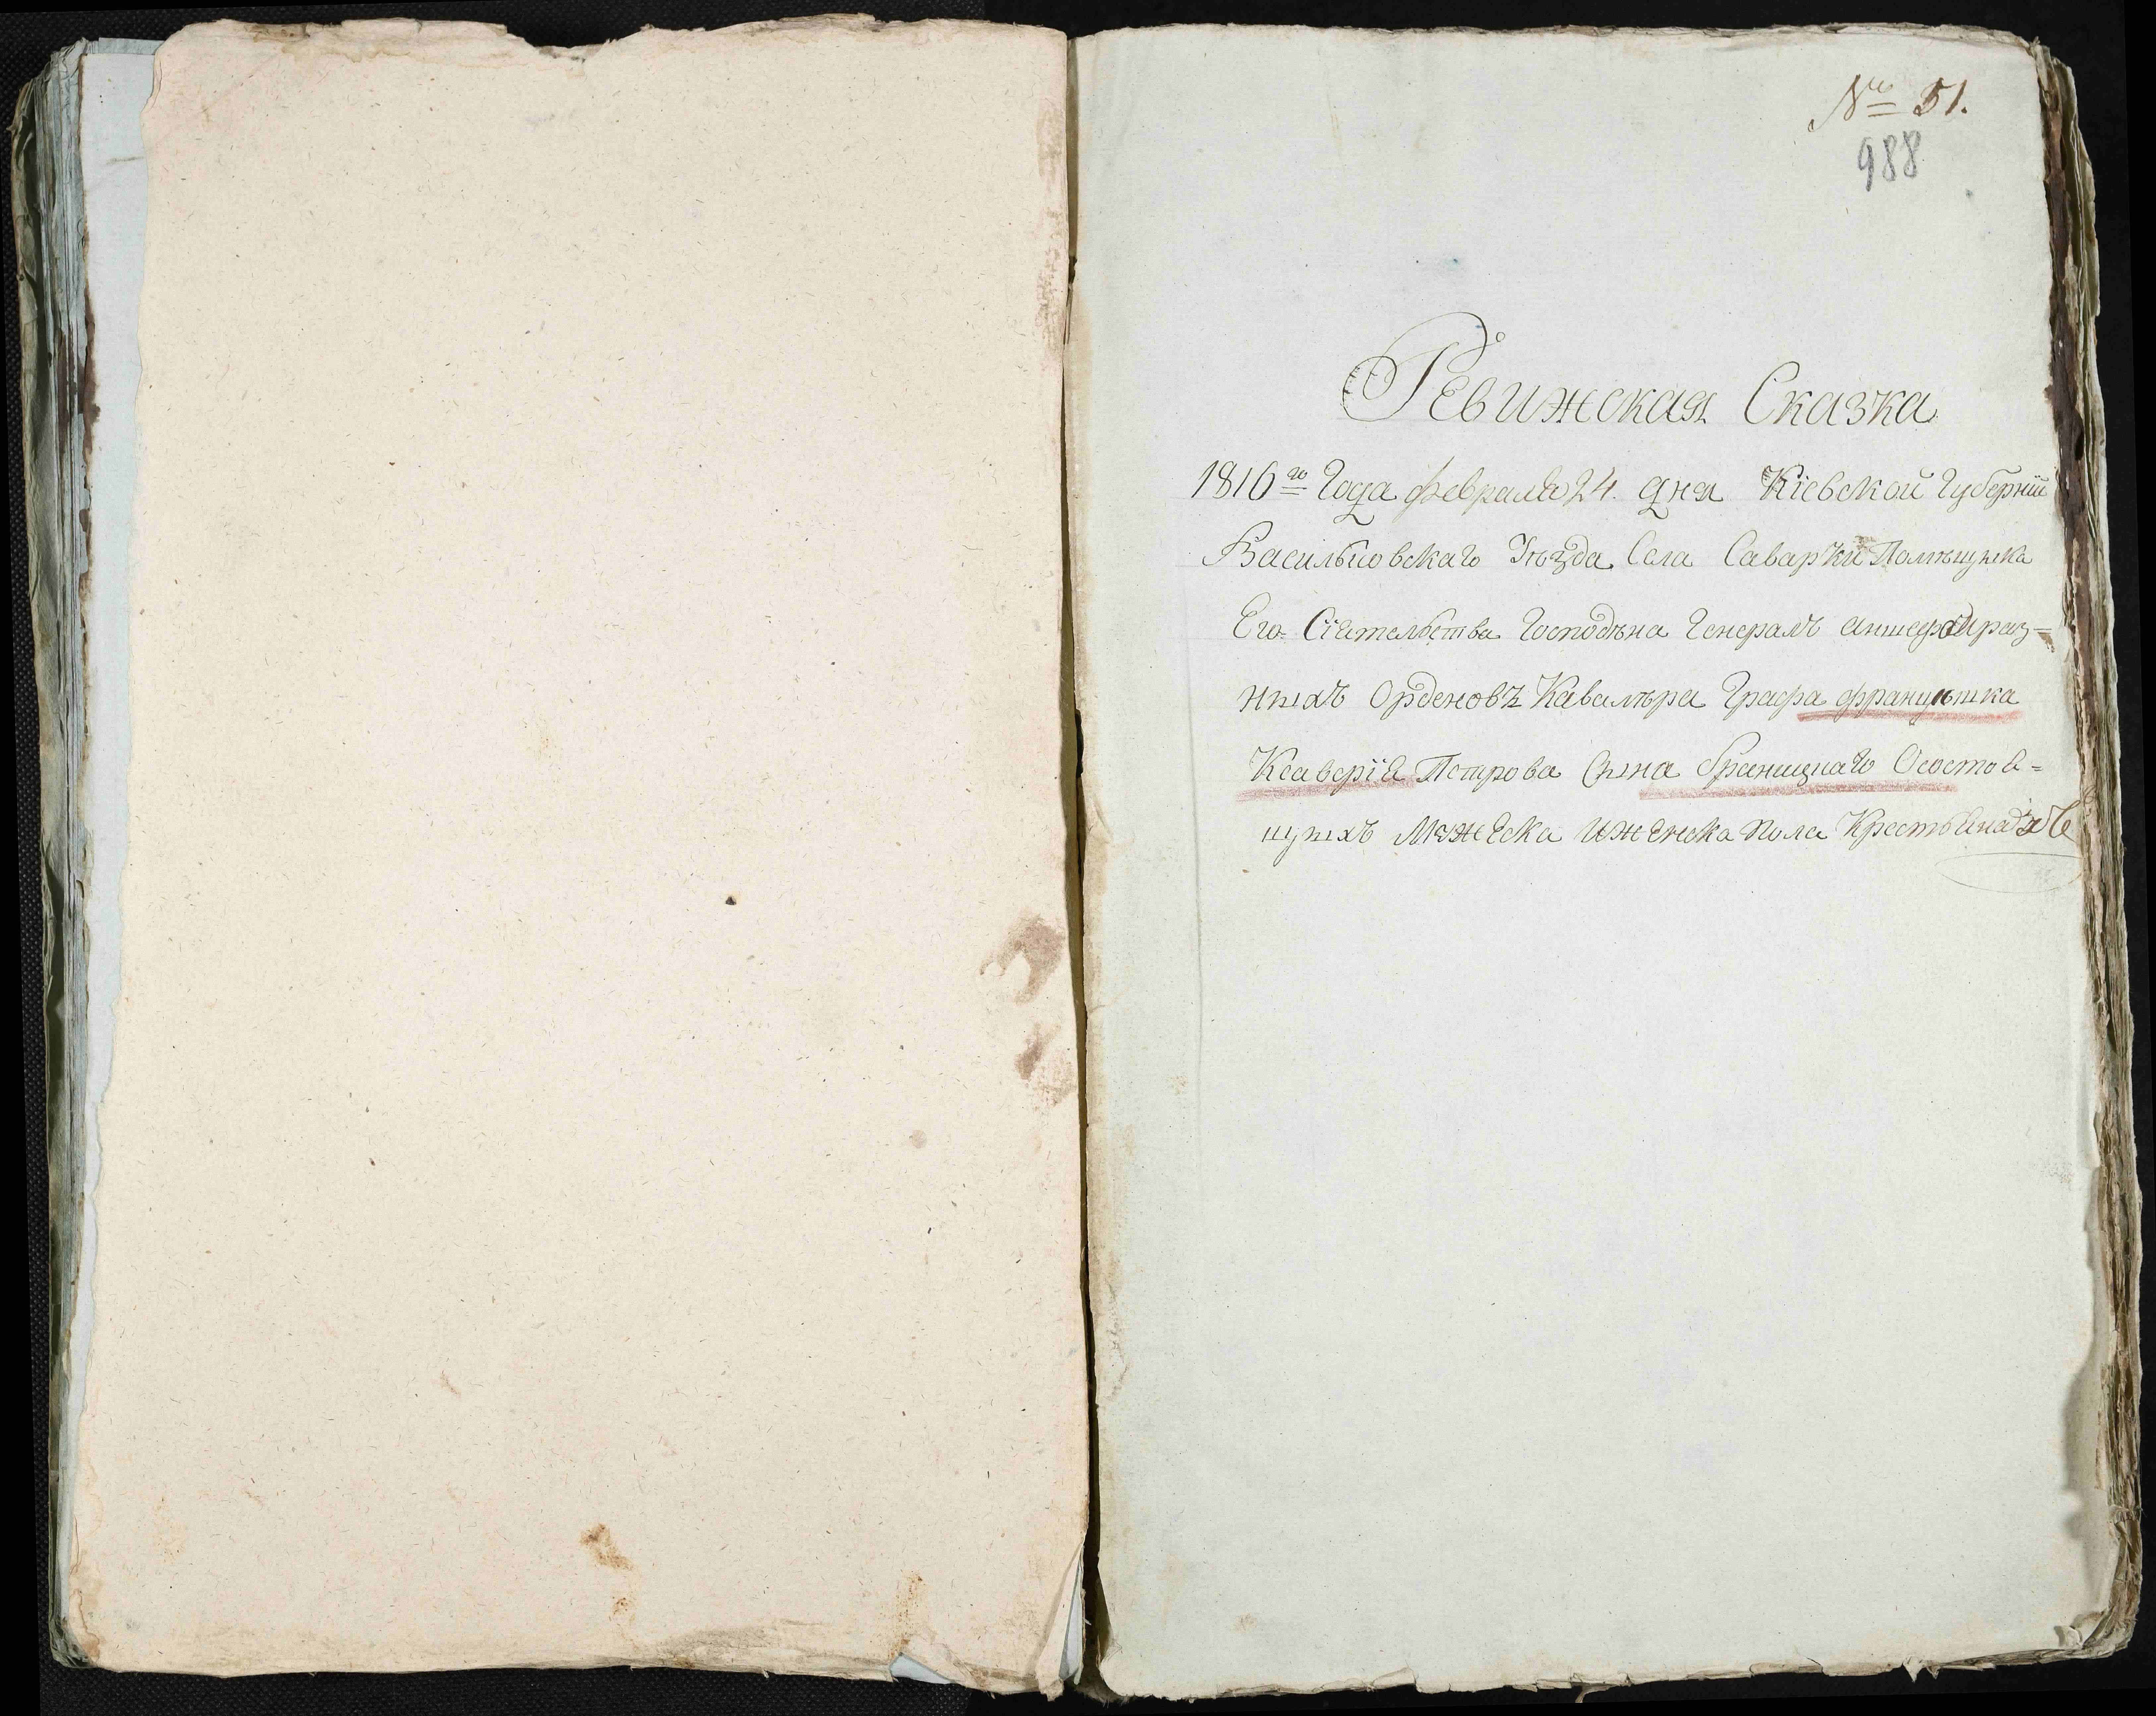 № 51.
988
Ревижская Сказка
1816го Года февраля 24. дня Кіевской Губерніи
Васильковскаго Уѣзда Села Саварки Помѣщика
Его Сіятелства Господина Генералъ аншефа Ираз=
ныхъ Орденовъ Кавалѣра Графа францышка
Ксаверія Петрова Сына браницкаго Осостоя=
щихъ Мужеска Иженска пола Крестьянахъ